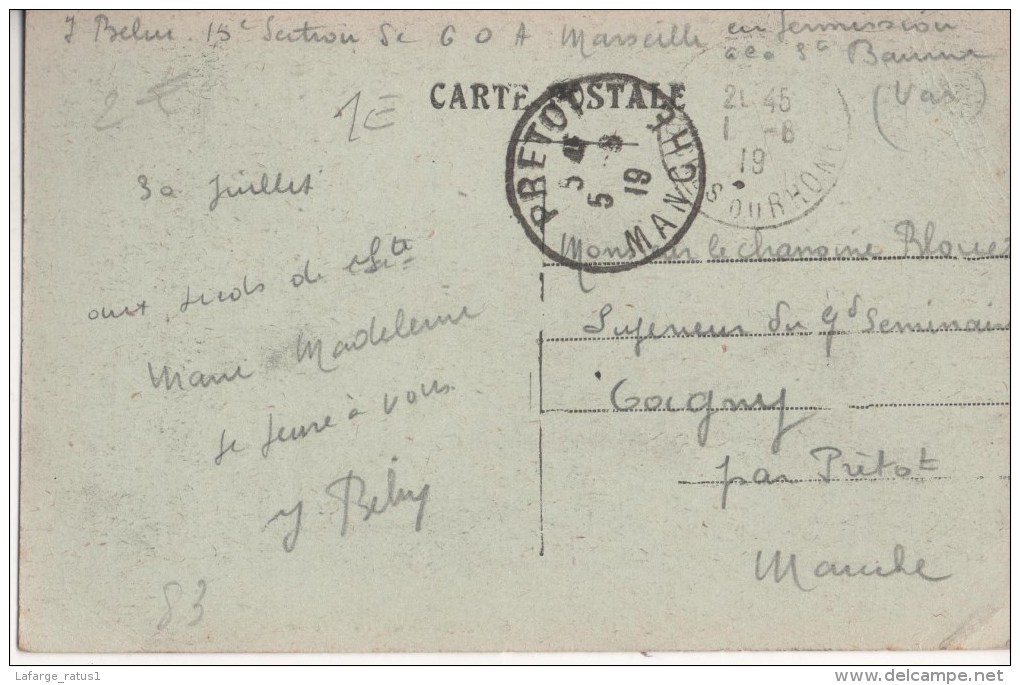 15e Section Se C O A Marseille en permission
Ste Baume
(Var)
2 €
1E
CARTE POSTALE
PRETOT MANCHE
5 - 8
19
21 45
1 - 8
19
S DU RHONE
30 Juillet
aux pieds de Ste
Marie Madeleine
Je pense à vous.
Monsieur le chanoine Blouet
Superieur du Gd Seminaire
Coigny
par Prétot
Manche
83
Lafarge_ratus1
www.delcampe.net